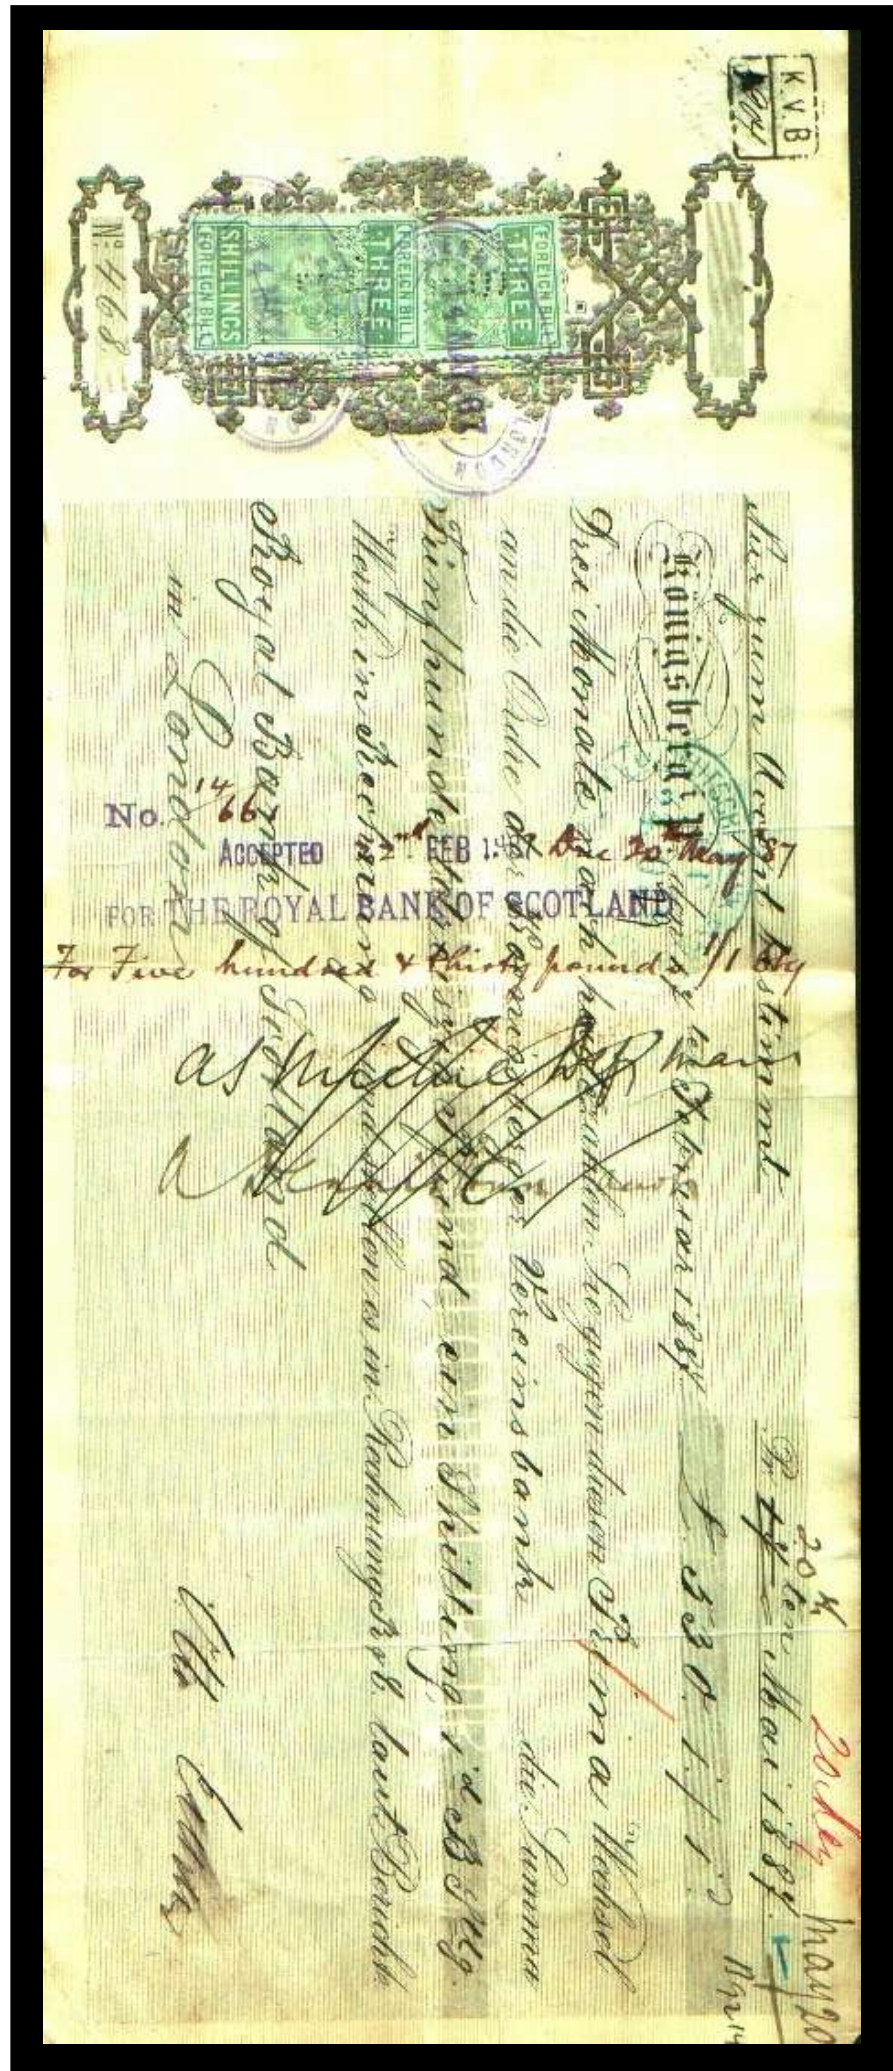 K.V.B
No 468
FOREIGN BILL
THREE
FOREIGN BILL
THREE
SHILLINGS
FOREIGN BILL
LONDON
Nur zum Accept bestimmt
Pr 20 ten Mai 1887.
20 May
May 20
Königsberg i/Pr. den 17 ten Februar 1887.
£ 530. 1./1.
Drei Monate nach heute zahlen Sie gegen diesen Prima Wechsel
an die Ordre der Königsberger Vereinsbank die Summa
Fünfhundertdreissig Pfund, ein Shilling, 1 d
Werth in Rechnung und stellen es in Rechnung laut Bericht
Royal Bank of Scotland
in London
No. 14/66
ACCEPTED 2nd FEB 1887 Due 20th May 87
FOR THE ROYAL BANK OF SCOTLAND
For Five hundred & thirty pounds 1/1 stg
Otto